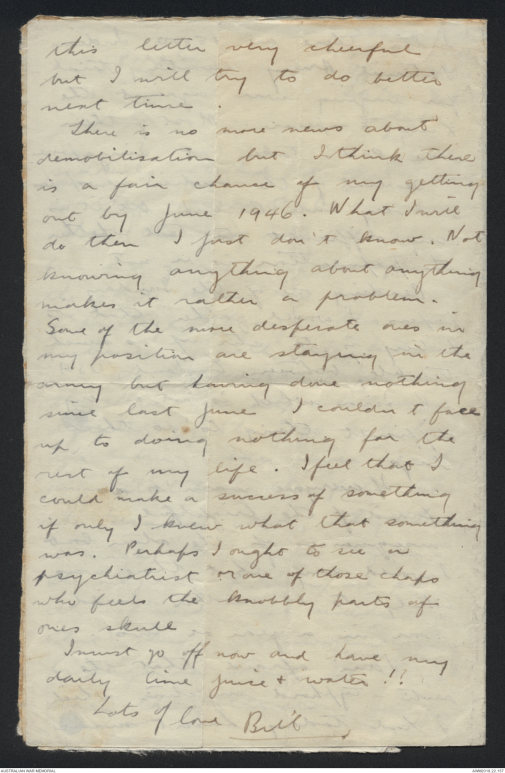 this letter very cheerful
but I will try to do better
next time.
There is no more news about
demobilisation but I think there
is a fair chance of my getting
out by June 1946. What I will
do then I just don't know. Not
knowing anything about anything
makes it rather a problem.
Some of the more desperate ones in
my position are staying in the
army but having done nothing
since last June I couldn't face
up to doing nothing for the
rest of my life. I feel that I
could make a success of something
if only I knew what that something
was. Perhaps I ought to see a
psychiatrist or one of those chaps
who feels the knobbly parts of
ones skull
I must go off now and have my
daily lime juice & water!!
Lots of love Bill
AUSTRALIAN WAR MEMORIAL